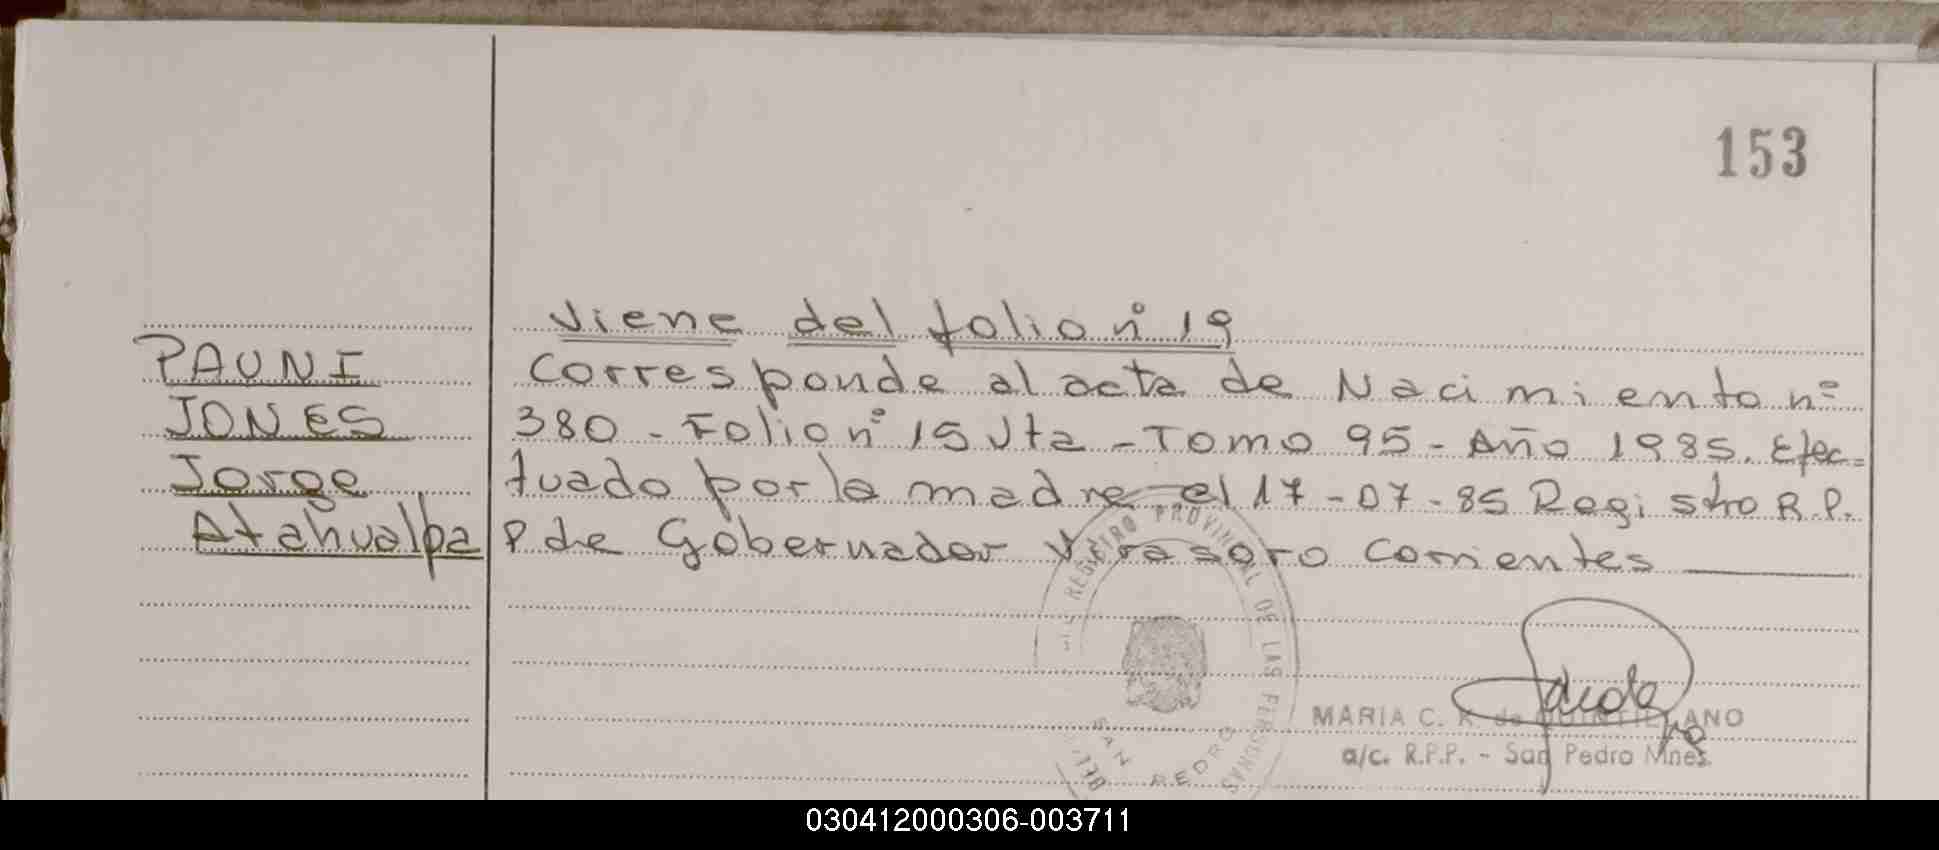 153
Viene del folio nº 19
PAUNI
Corresponde al acta de Nacimiento nº
JONES
380 - Folio nº 15 Vta - Tomo 95 - Año 1985. Efec=
Jorge
tuado por la madre el 17-07-85 Registro R.P.
Atahualpa
P de Gobernador Virasoro Corrientes
REGISTRO PROVINCIAL DE LAS PERSONAS
SAN PEDRO
MARIA C. R. de
a/c. R.P.P. - San Pedro Mnes.
030412000306-003711